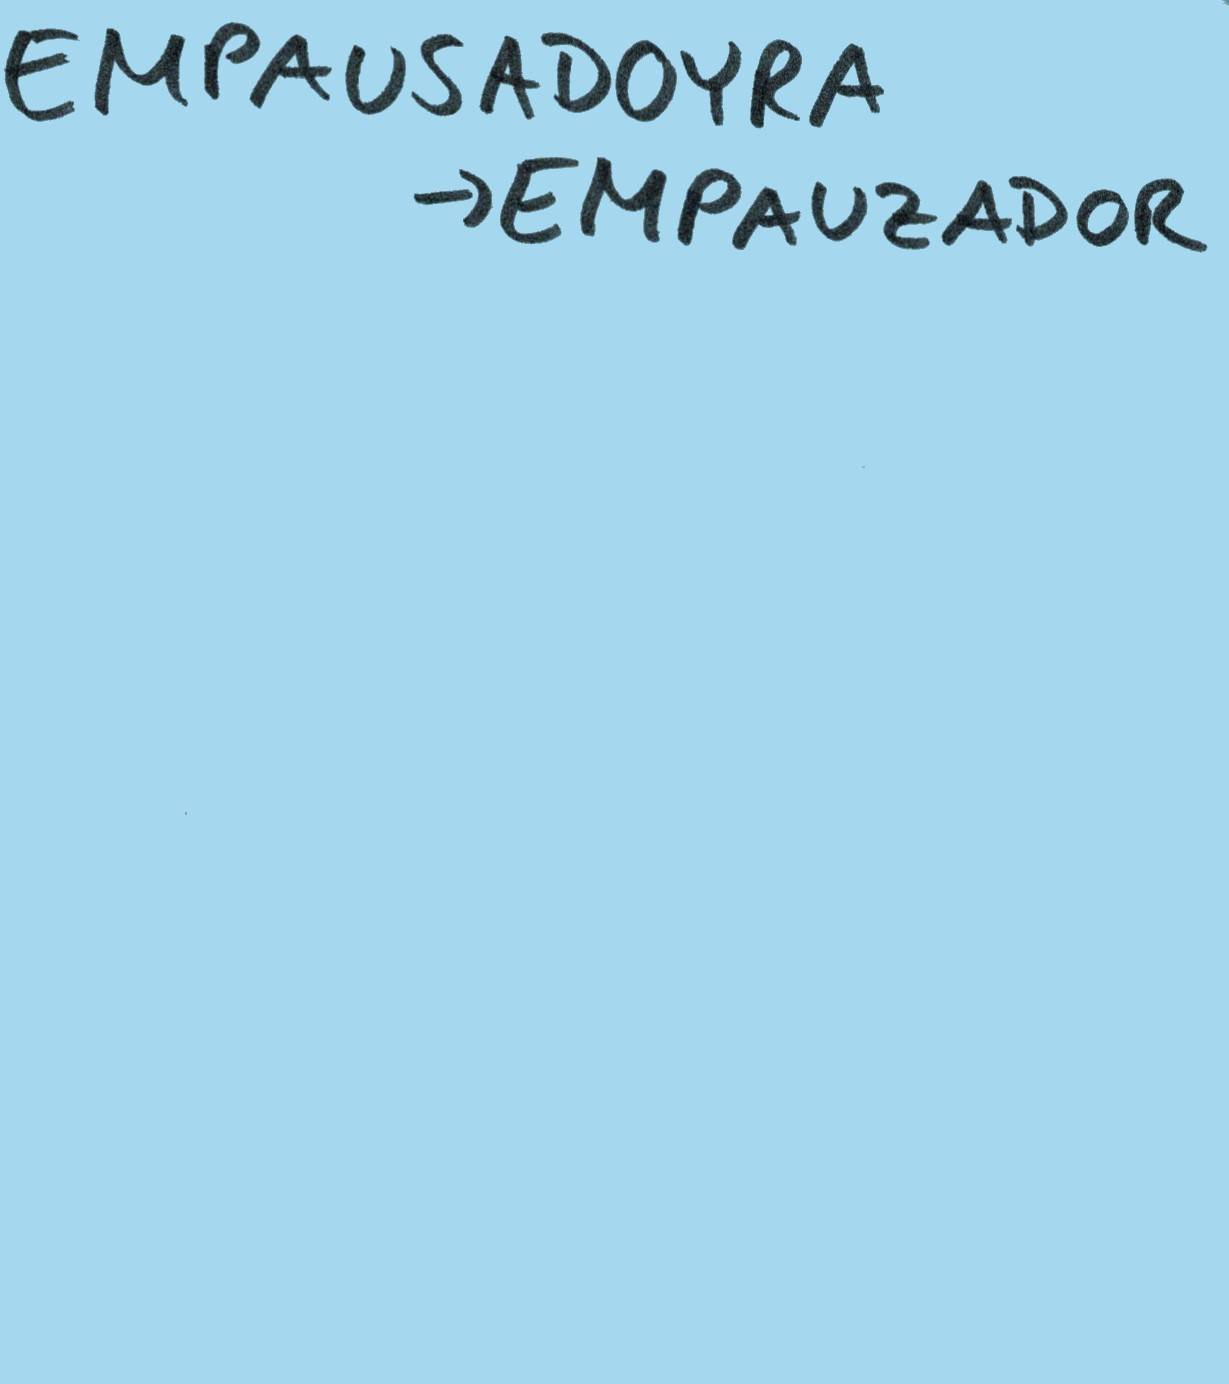 EMPAUSADOYRA
→EMPAUZADOR